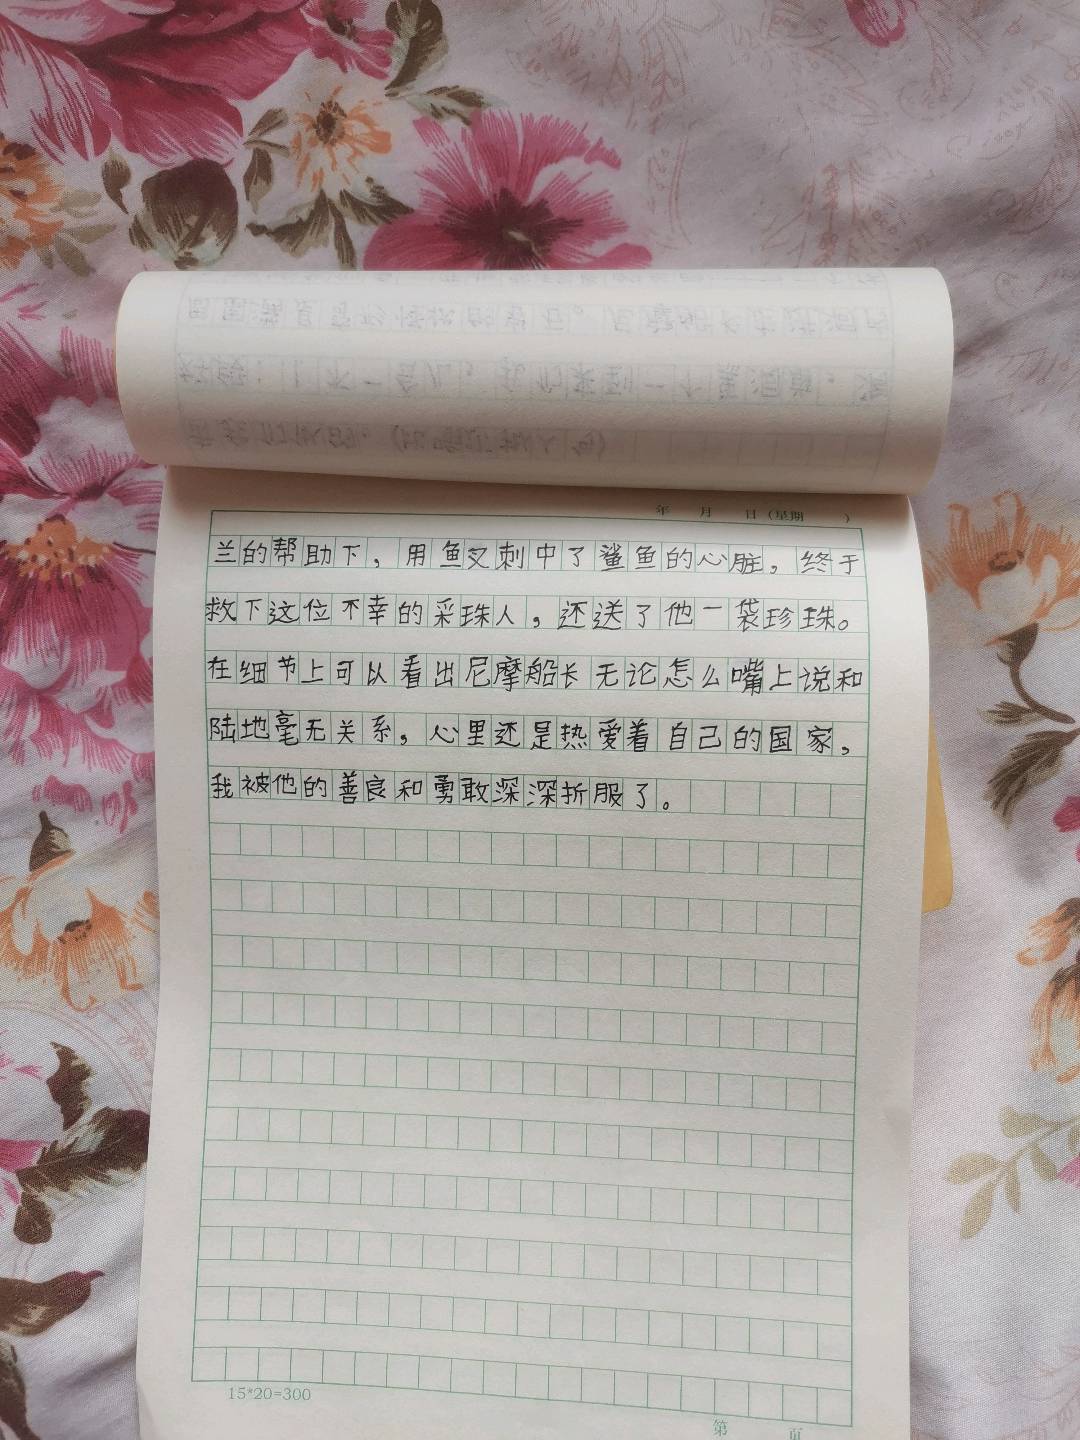 年 月 日（星期 ）
兰的帮助下，用鱼叉刺中了鲨鱼的心脏，终于
救下这位不幸的采珠人，还送了他一袋珍珠。
在细节上可以看出尼摩船长无论怎么嘴上说和
陆地毫无关系，心里还是热爱着自己的国家，
我被他的善良和勇敢深深折服了。
15*20=300
第 页